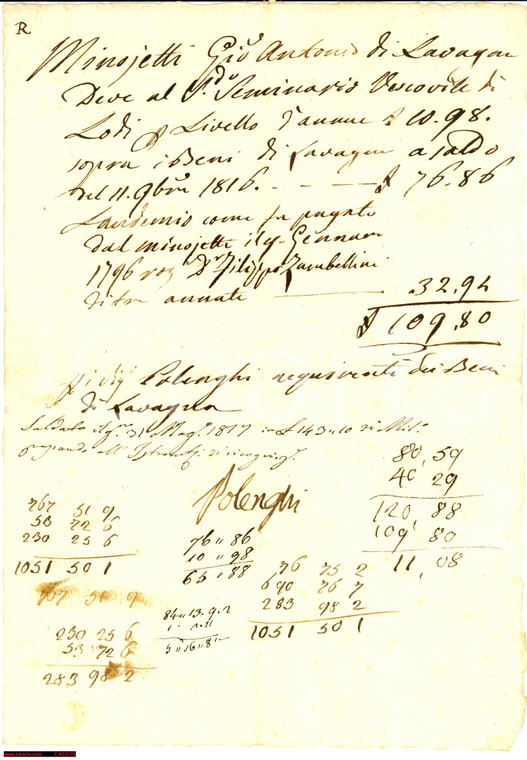 R
Minojetti Gio Antonio di Lavagna
Deve al S.do Seminario Vescovile di
Lodi Livello d'annue £ 10.98.
sopra i Beni di Lavagna a saldo
del 11. 9bre 1816. - - — £ 76.86
Laudemio come fu pagato
dal Minojetti il 9. Gennaro
1796 Dr Filippo Zambellini
di tre annate — 32.94
£ 109.80
Polenghi acquirenti dei Beni
di Lavagna
Saldato 31 Magº 1817 £ 143.10 di Milº
Polenghi
80, 59
40, 29
120 88
109, 80
11, 08
767 51 9
53 72 6
230 25 6
1051 50 1
76 " 86
10 " 98
65 " 88
707 51 9
230 25 6
53 72 6
283 98 2
84 " 13. 9. 2
5 " 16 " 8
76 75 2
690 76 7
283 98 2
1051 50 1